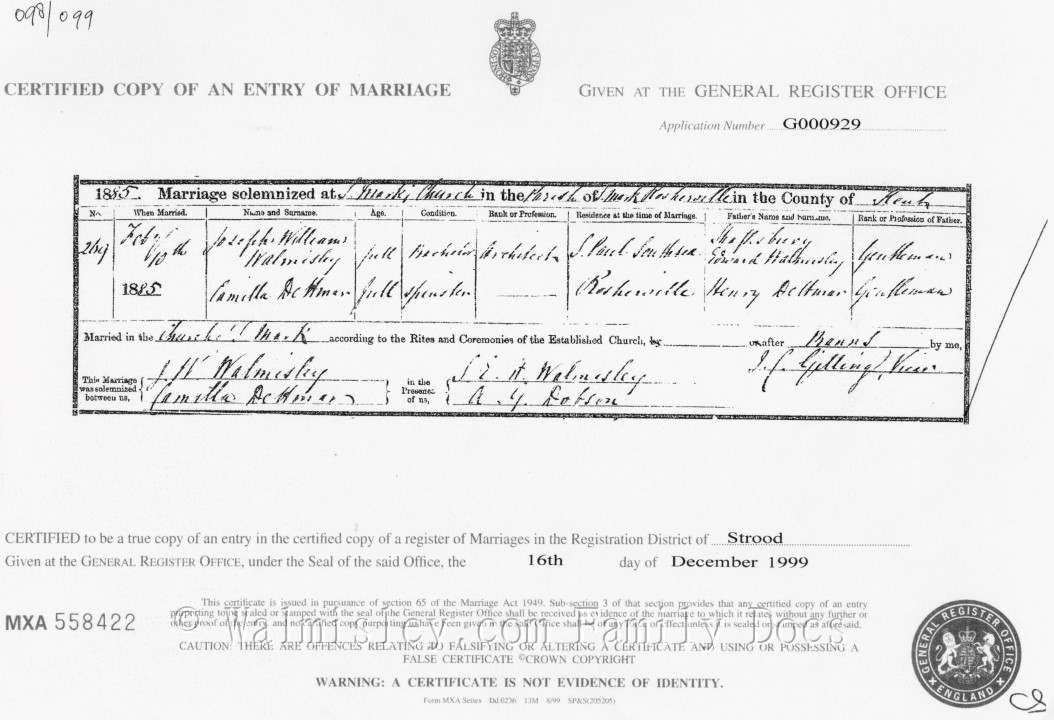 098/099
CERTIFIED COPY OF AN ENTRY OF MARRIAGE
GIVEN AT THE GENERAL REGISTER OFFICE
Application Number G000929
1885. Marriage solemnized at S. Mark's Church in the Parish of S. Mark Rosherville in the County of Kent
No. When Married. Name and Surname. Age. Condition. Rank or Profession. Residence at the time of Marriage. Father's Name and Surname. Rank or Profession of Father.
Feby Joseph William Shaftsbury
Walmisley full Bachelor Architect S. Paul Southsea Edward Walmisley Gentleman
1885 Camilla Dettmar full Spinster Rosherville Henry Dettmar Gentleman
Married in the Church S. Mark according to the Rites and Ceremonies of the Established Church, by or after Banns by me,
This Marriage was solemnized between us, J W Walmisley in the Presence of us, Walmisley Vicar
Camilla Dettmar A. Y. Dobson
CERTIFIED to be a true copy of an entry in the certified copy of a register of Marriages in the Registration District of Strood
Given at the GENERAL REGISTER OFFICE, under the Seal of the said Office, the 16th day of December 1999
MXA 558422
This certificate is issued in pursuance of section 65 of the Marriage Act 1949. Sub-section 3 of that section provides that any certified copy of an entry
purporting to be sealed or stamped with the seal of the General Register Office shall be received as evidence of the marriage to which it relates without any further or
other proof of the entry, and no certified copy purporting to have been given in the said Office shall be of any force or effect unless it is sealed or stamped as aforesaid.
© Walmisley.com Family Docs
CAUTION: THERE ARE OFFENCES RELATING TO FALSIFYING OR ALTERING A CERTIFICATE AND USING OR POSSESSING A
FALSE CERTIFICATE ©CROWN COPYRIGHT
WARNING: A CERTIFICATE IS NOT EVIDENCE OF IDENTITY.
Form MXA Series Dd 0236 13M 8/99 SP&S(205205)
GENERAL REGISTER OFFICE
ENGLAND